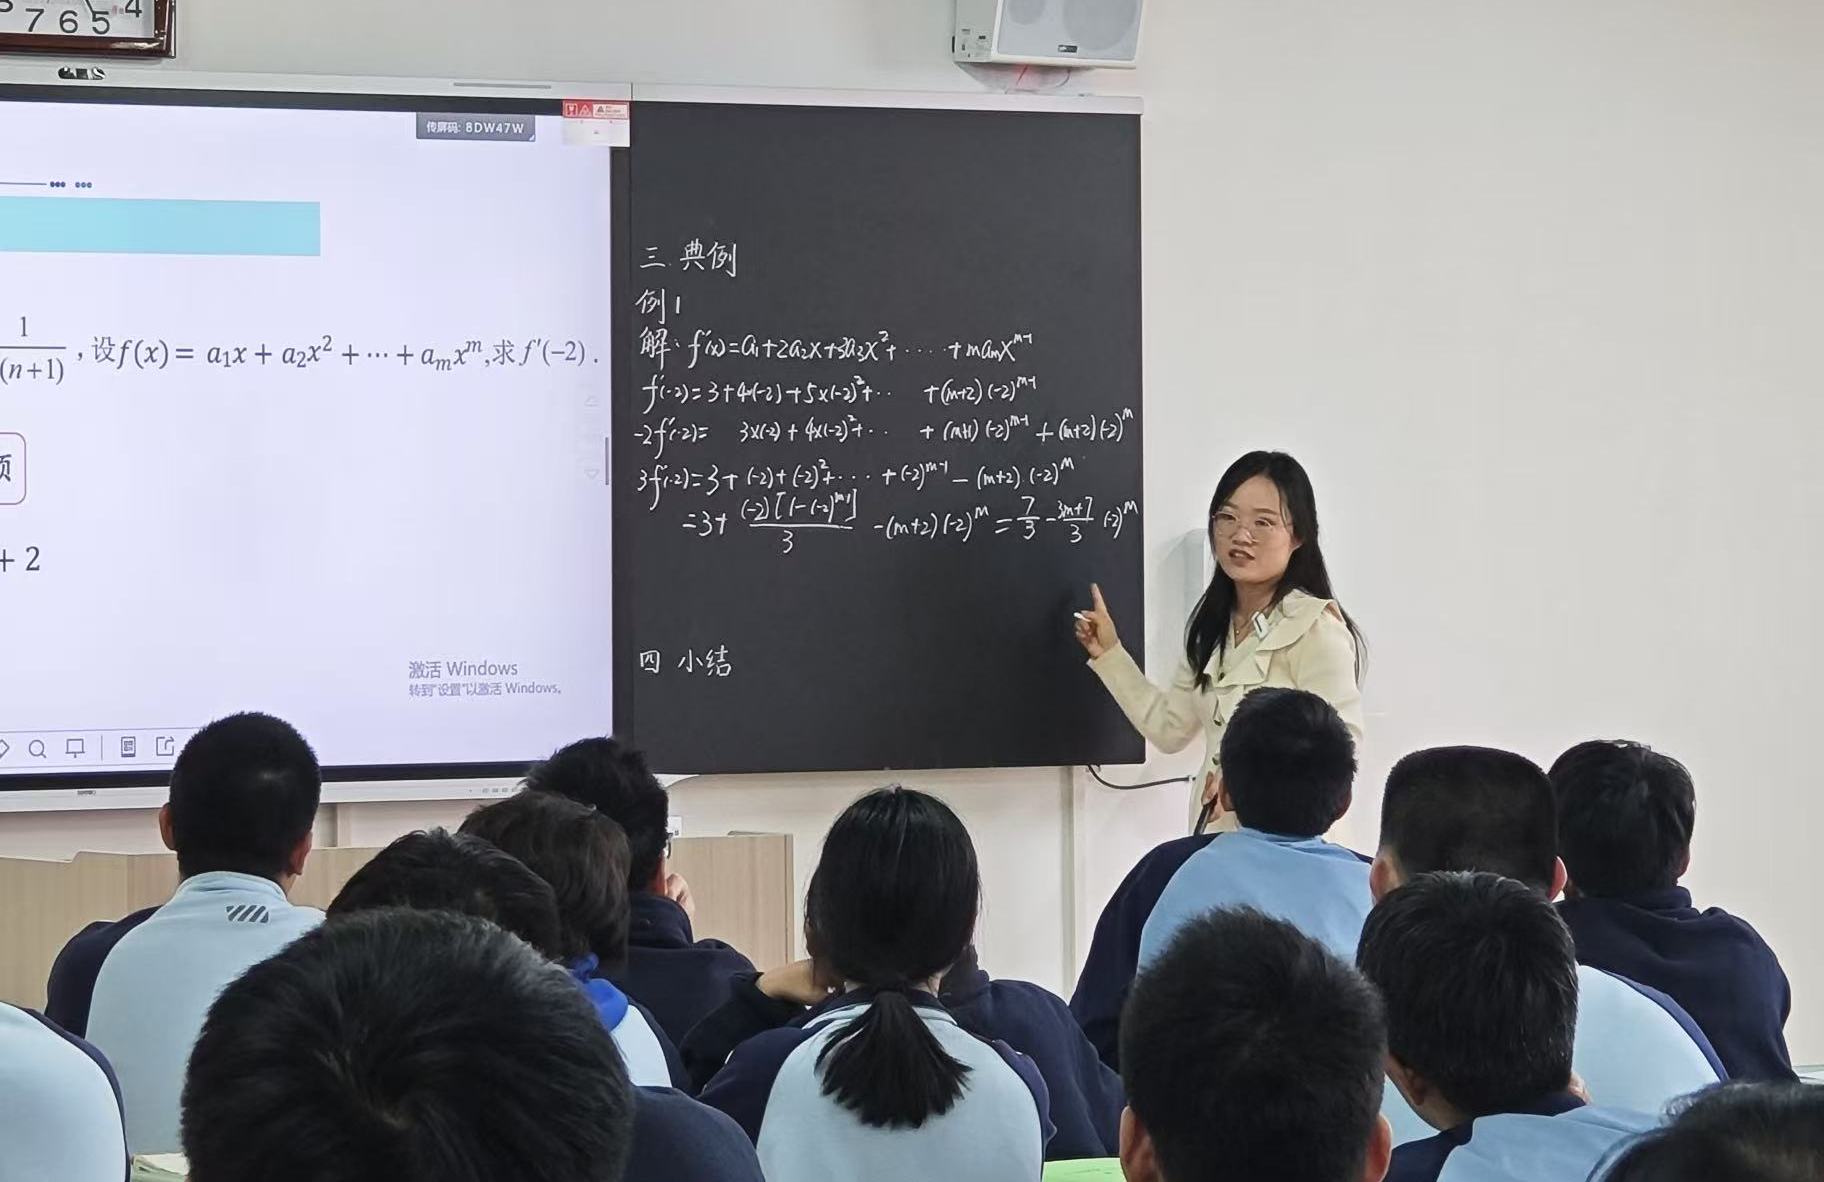 7 6 5 4
传屏码: 8DW47W
1/(n+1) , 设f(x) = a₁x + a₂x² + ⋯ + aₘxᵐ,求 f′(−2) .
项
+ 2
激活 Windows
转到"设置"以激活 Windows。
三. 典例
例1
解: f′(x)=a₁+2a₂x+3a₃x²+ ‥‥ +maₘxᵐ⁻¹
f′(-2)=3+4×(-2)+5×(-2)²+‥ +(m+2)(-2)ᵐ⁻¹
-2f′(-2)= 3×(-2)+4×(-2)²+‥ +(m+1)(-2)ᵐ⁻¹+(m+2)(-2)ᵐ
3f′(-2)=3+(-2)+(-2)²+‥‥+(-2)ᵐ⁻¹-(m+2)·(-2)ᵐ
=3+ (-2)[1-(-2)ᵐ⁻¹]/3 -(m+2)(-2)ᵐ = 7/3 - (3m+7)/3 (-2)ᵐ
四 小结